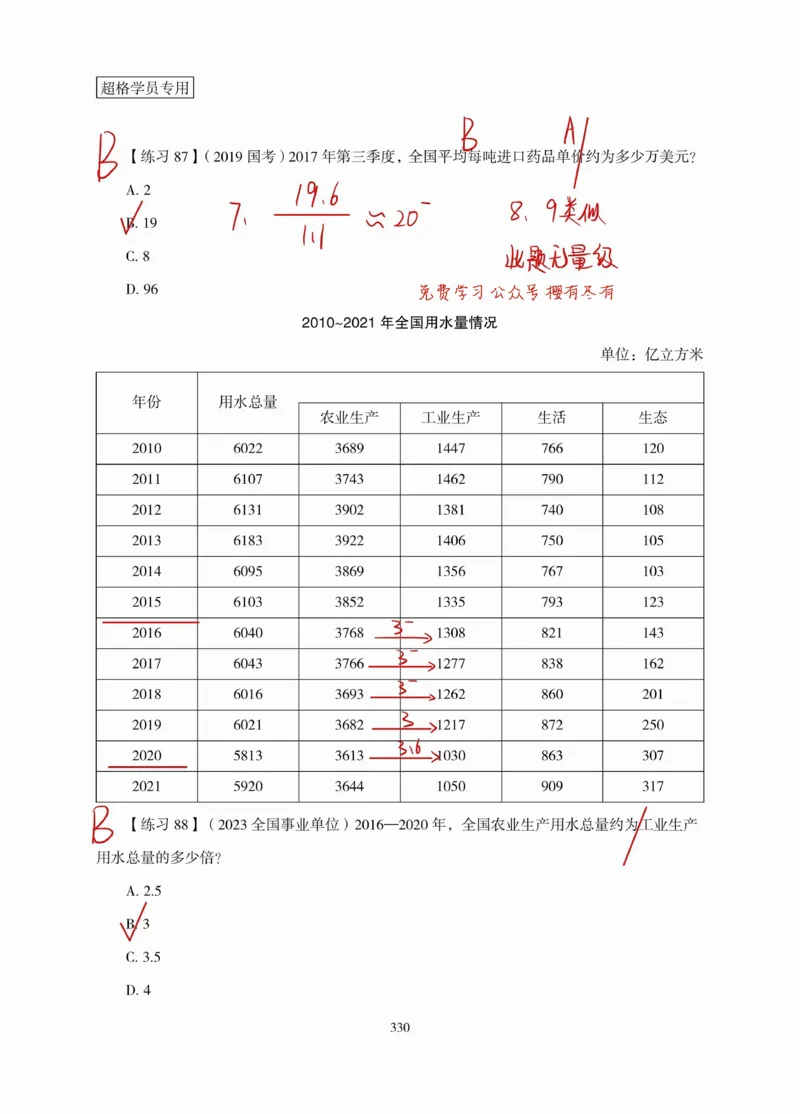 超格学员专用
B 【练习 87】（2019 国考）2017 年第三季度，全国平均每吨进口药品单价约为多少万美元？ B A/
A. 2
B. 19
C. 8
D. 96
7、 19.6 / 1.1 ≈ 20⁻
8、9类似
此题无量级
免费学习公众号 樱有尽有
2010~2021 年全国用水量情况
单位：亿立方米
年份 用水总量 农业生产 工业生产 生活 生态
2010 6022 3689 1447 766 120
2011 6107 3743 1462 790 112
2012 6131 3902 1381 740 108
2013 6183 3922 1406 750 105
2014 6095 3869 1356 767 103
2015 6103 3852 1335 793 123
2016 6040 3768 3⁻ 1308 821 143
2017 6043 3766 3⁻ 1277 838 162
2018 6016 3693 3⁻ 1262 860 201
2019 6021 3682 3 1217 872 250
2020 5813 3613 3.6 1030 863 307
2021 5920 3644 1050 909 317
B 【练习 88】（2023 全国事业单位）2016—2020 年，全国农业生产用水总量约为工业生产
用水总量的多少倍？
A. 2.5
B. 3
C. 3.5
D. 4
330